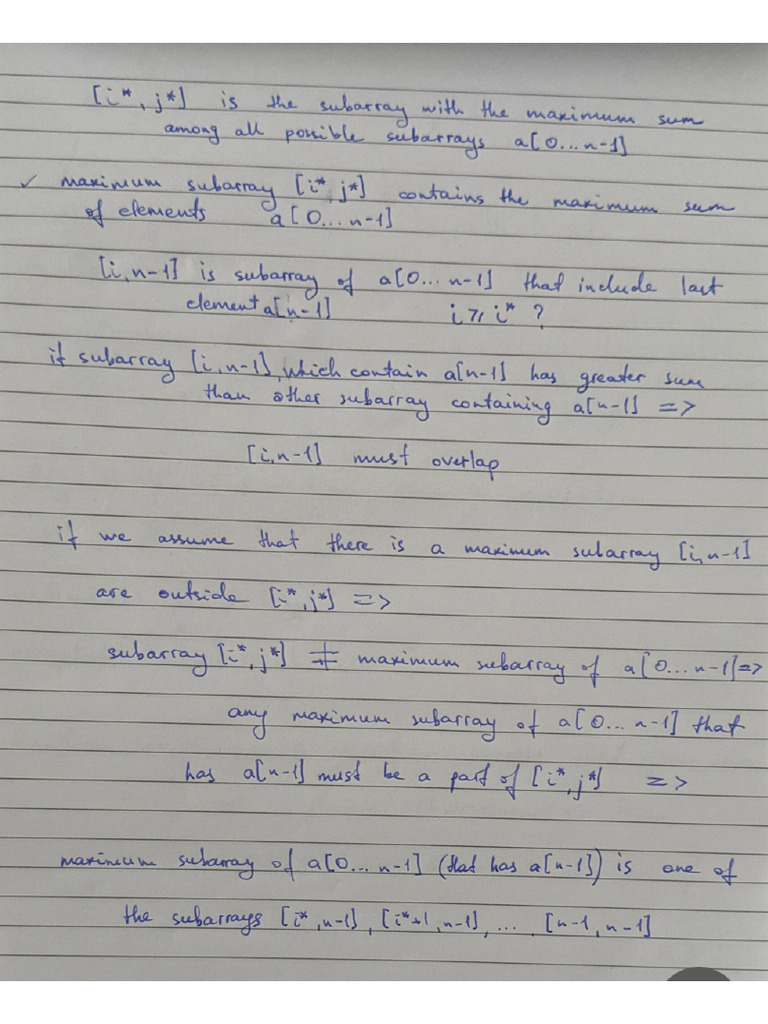 [i*, j*] is the subarray with the maximum sum
among all possible subarrays a[0...n-1]
✓ maximum subarray [i*, j*] contains the maximum sum
of elements a[0...n-1]
[i, n-1] is subarray of a[0...n-1] that include last
element a[n-1] i ≥ i* ?
if subarray [i, n-1], which contain a[n-1] has greater sum
than other subarray containing a[n-1] =>
[i, n-1] must overlap
if we assume that there is a maximum subarray [i, n-1]
are outside [i*, j*] =>
subarray [i*, j*] ≠ maximum subarray of a[0...n-1] =>
any maximum subarray of a[0...n-1] that
has a[n-1] must be a part of [i*, j*] =>
maximum subarray of a[0...n-1] (that has a[n-1]) is one of
the subarrays [i*, n-1], [i*+1, n-1], ... [n-1, n-1]